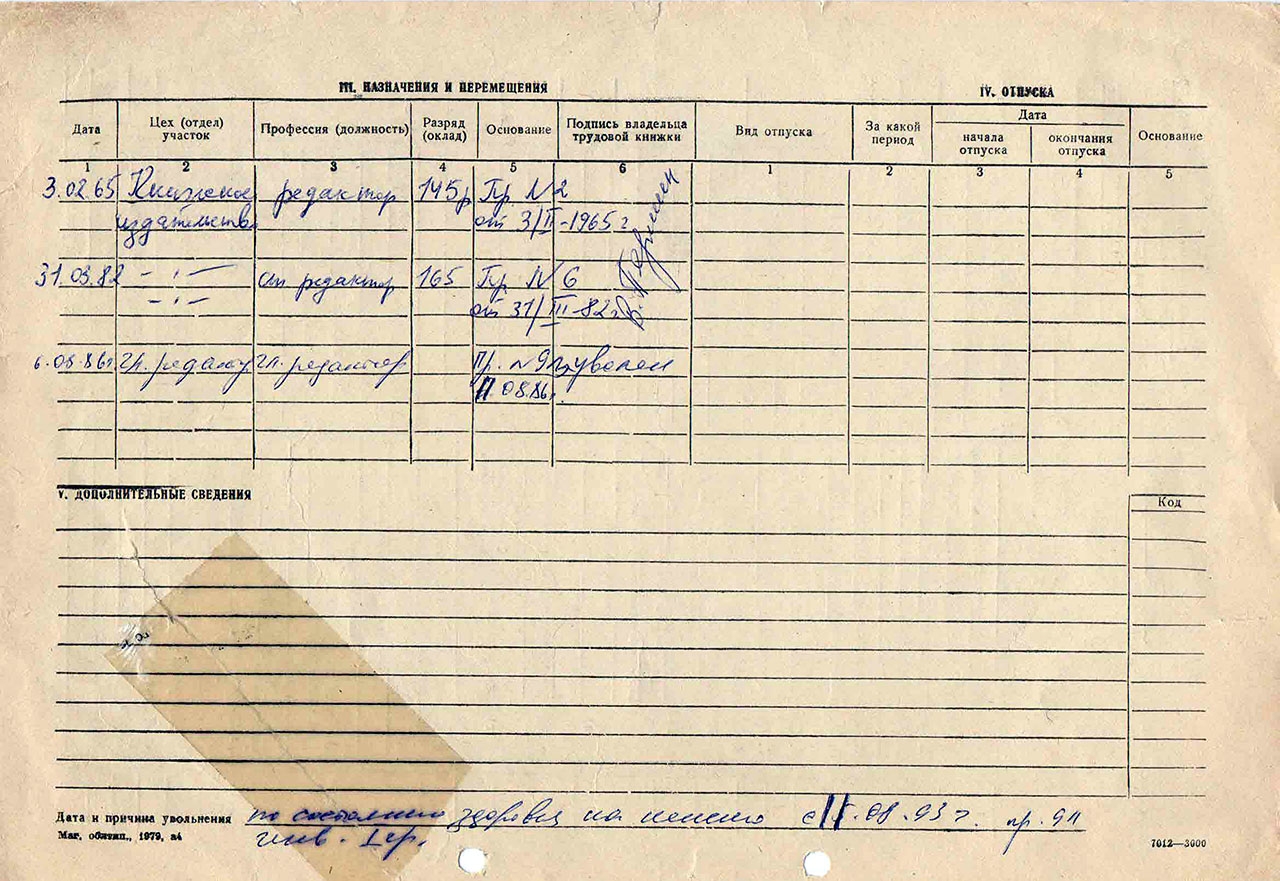 III. НАЗНАЧЕНИЯ И ПЕРЕМЕЩЕНИЯ
IV. ОТПУСКА
Дата Цех (отдел) участок Профессия (должность) Разряд (оклад) Основание Подпись владельца трудовой книжки
Вид отпуска За какой период Дата начала отпуска окончания отпуска Основание
1 2 3 4 5 6 1 2 3 4 5
3.02.65 Книжное редактор 145р Пр N 2
издательство от 3/II-1965 г
31.03.82 -"- ст редактор 165 Пр N 6
-"- от 31/III-82г
6.08.86г. гл. редакт гл. редактор Пр. N 9 уволен
11.08.86г.
V. ДОПОЛНИТЕЛЬНЫЕ СВЕДЕНИЯ
Код
Дата и причина увольнения по состоянию здоровья на пенсию с 11.08.93 г. пр. 9
Маг. обятип., 1979, а4 инв. I гр.
7012—3000